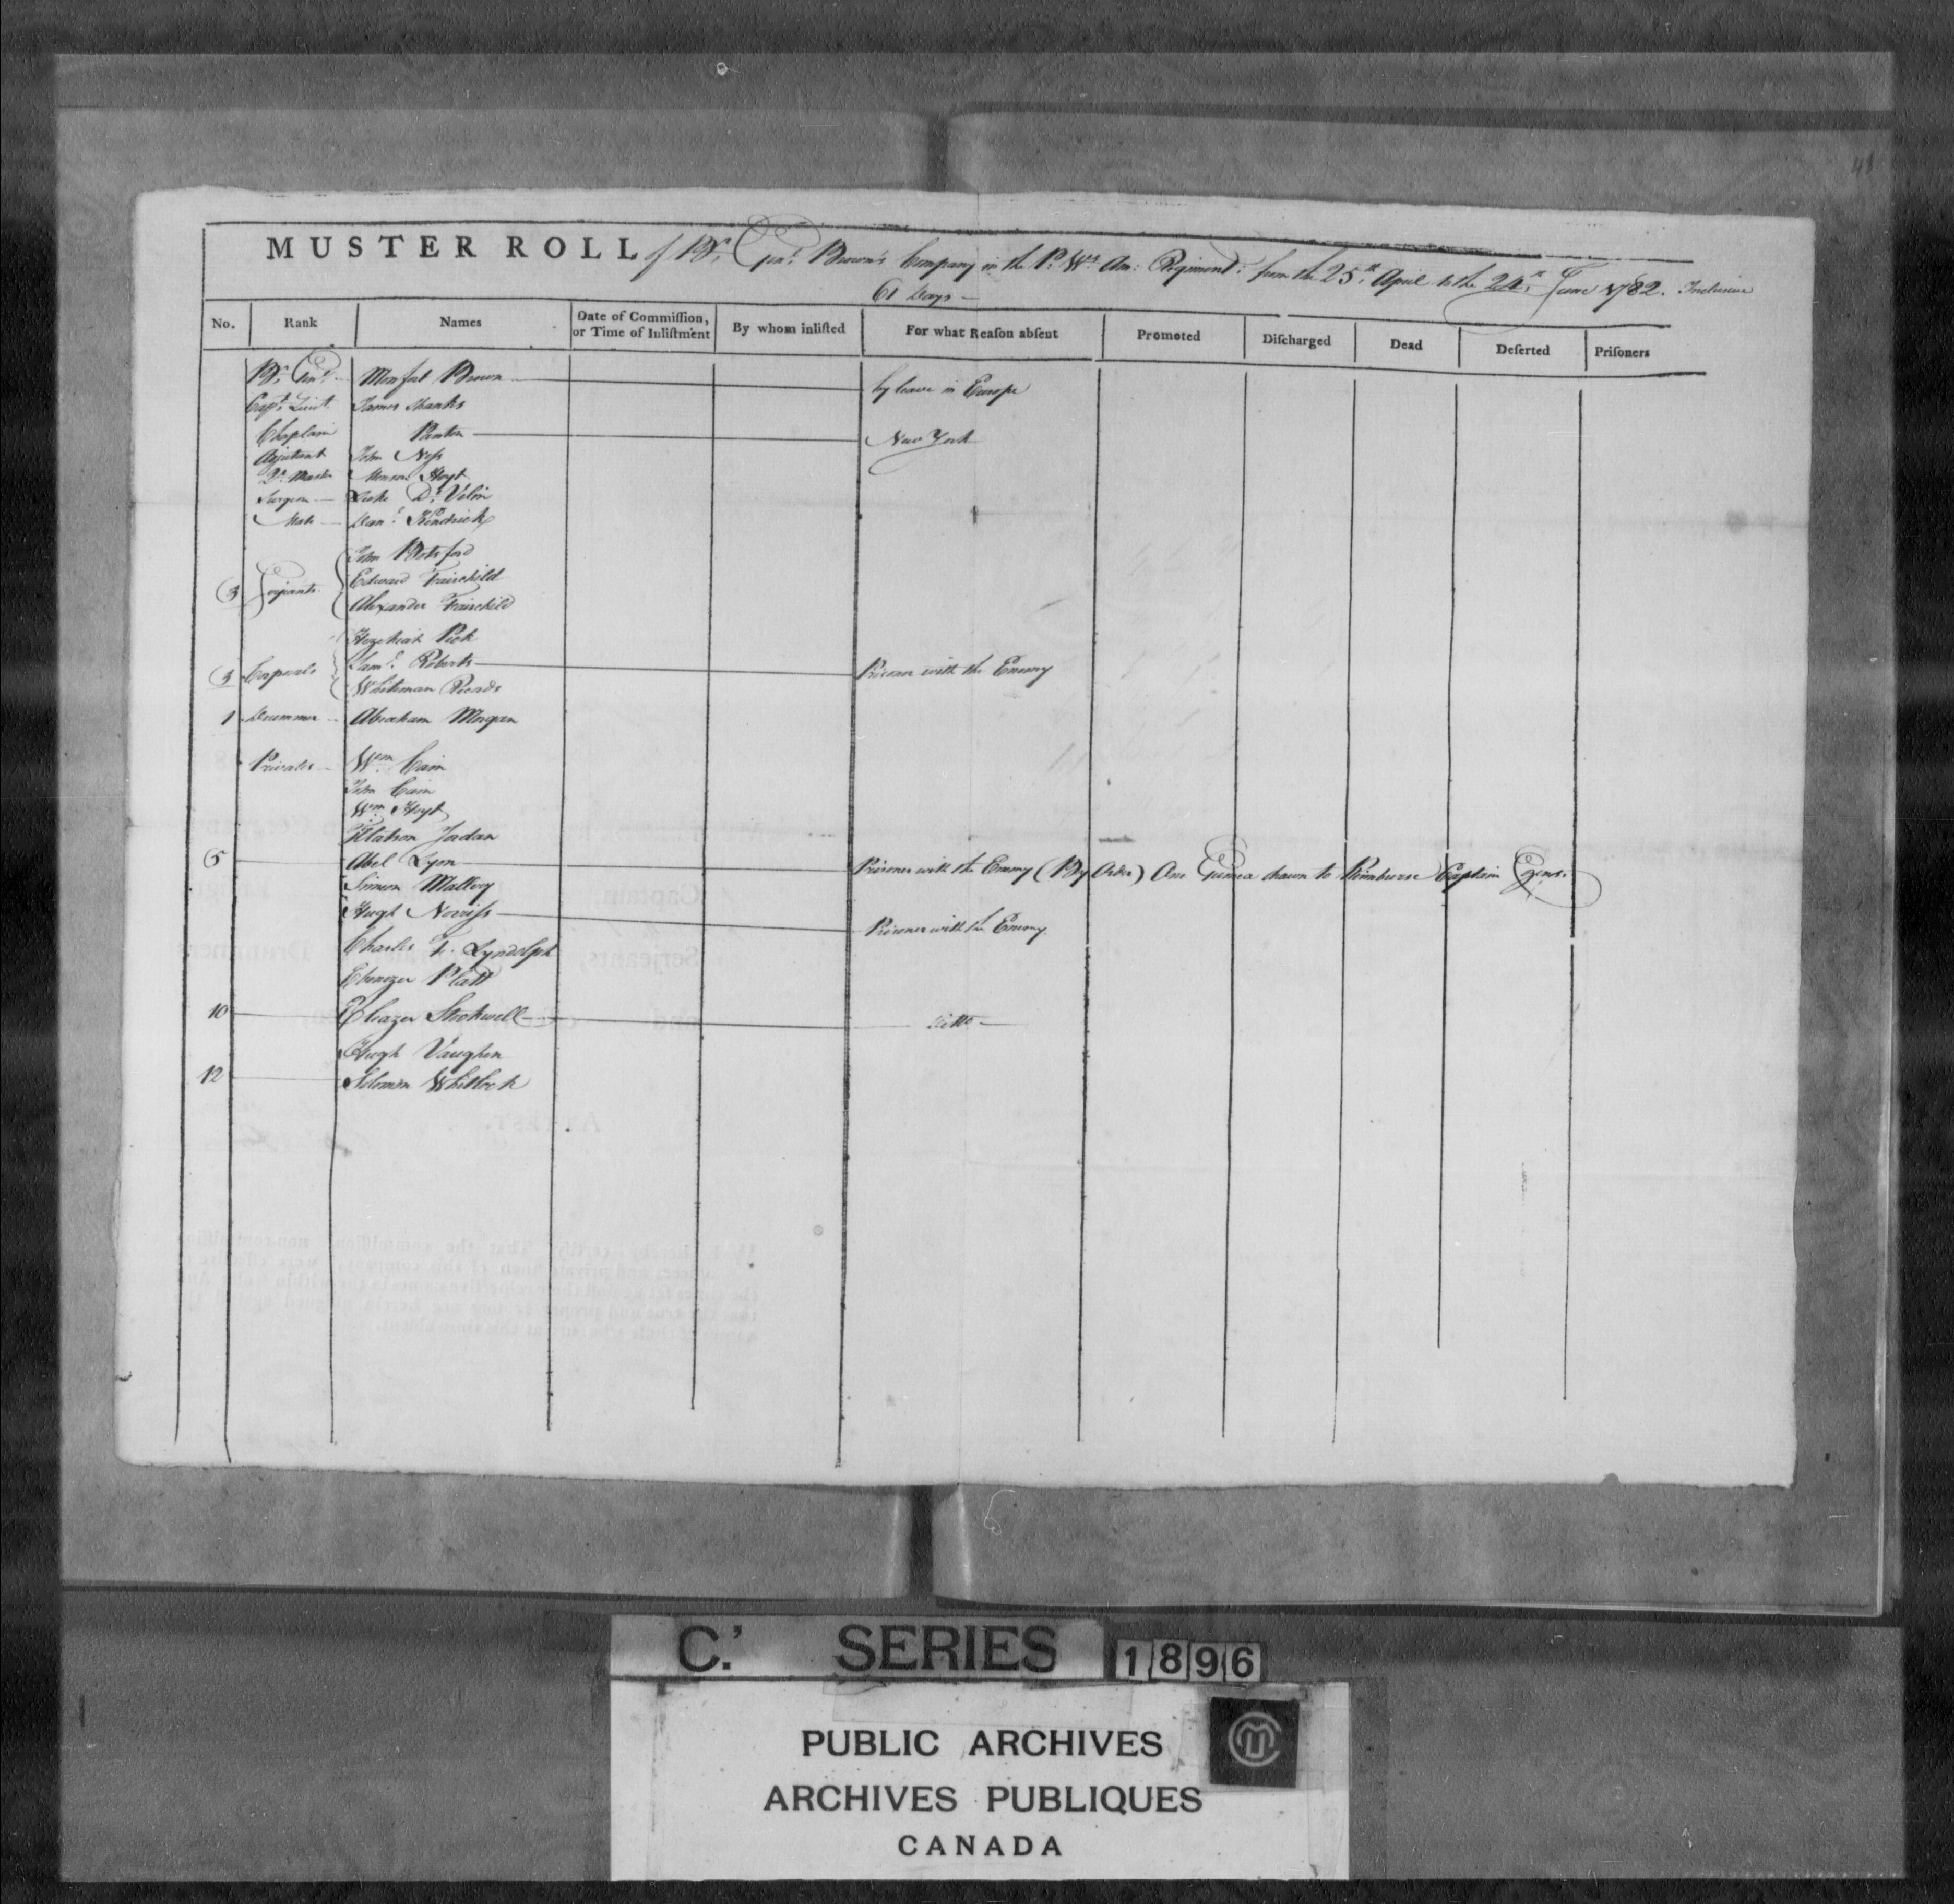 41
MUSTER ROLL of Br. Genl. Brown's Company in the P. Ws. Am: Regiment: from the 25th April to the 24th June 1782. Inclusive
61 Days —
No. Rank Names Date of Commiſſion, or Time of Inliſtment By whom inliſted For what Reaſon abſent Promoted Diſcharged Dead Deſerted Priſoners
Br. Genl. Monfort Brown by leave in Europe
Capt. Lieut. James Shanks
Chaplain Panton New York
Adjutant John Ness
Qr. Master Monson Hoyt
Surgeon Dr.
Mate Danl. Kendrick
John Botsford
Edward Fairchild
3 Serjeants Alexander Fairchild
Hezekiah Peck
Saml. Roberts Prisoner with the Enemy
3 Corporals Whiteman
1 Drummer Abraham Morgan
Privates Wm. Cain
John Cain
Wm. Hoyt
Jordan
5 Abel Lyon Prisoner with the Enemy (By Order) One Guinea drawn to Reimburse Captain
Simeon Mallery
Hugh Norriss Prisoner with the Enemy
Charles F. Lyndolph
Ebenezer Platt
10 Eleazer Stockwell Ditto
Hugh Vaughn
12 Solomon Whitlock
C.' SERIES 1896
PUBLIC ARCHIVES
ARCHIVES PUBLIQUES
CANADA